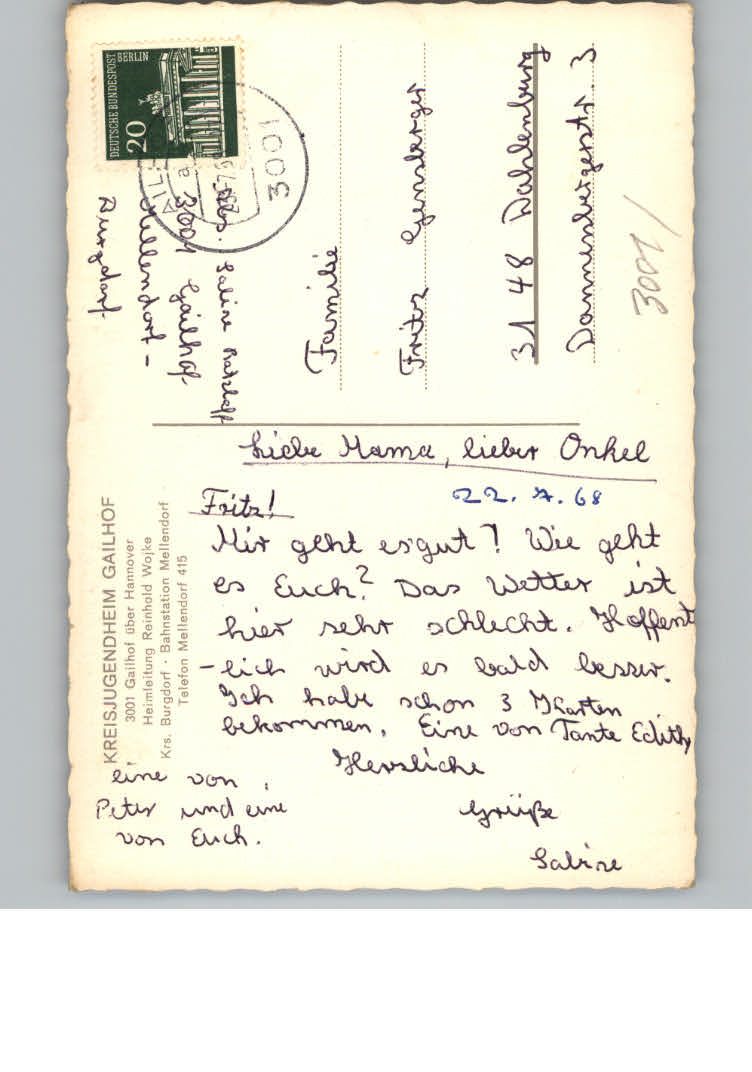 DEUTSCHE BUNDESPOST
BERLIN
20
3001
a
Abs. Sabine
3001 Gailhof-
Mellendorf-
Burgdorf
Familie
Fritz Gensberger
31 48 Dahlenburg
Dannenbergerstr. 3
3001/
KREISJUGENDHEIM GAILHOF
3001 Gailhof über Hannover
Heimleitung Reinhold Wojke
Krs. Burgdorf · Bahnstation Mellendorf
Telefon Mellendorf 415
Liebe Mama, lieber Onkel
Fritz!
22. 7. 68
Mir geht es gut! Wie geht
es Euch? Das Wetter ist
hier sehr schlecht. Hoffent
-lich wird es bald besser.
Ich habe schon 3 Karten
bekommen. Eine von Tante Edith,
eine von
Peter und eine
von Euch.
Herzliche
Grüße
Sabine